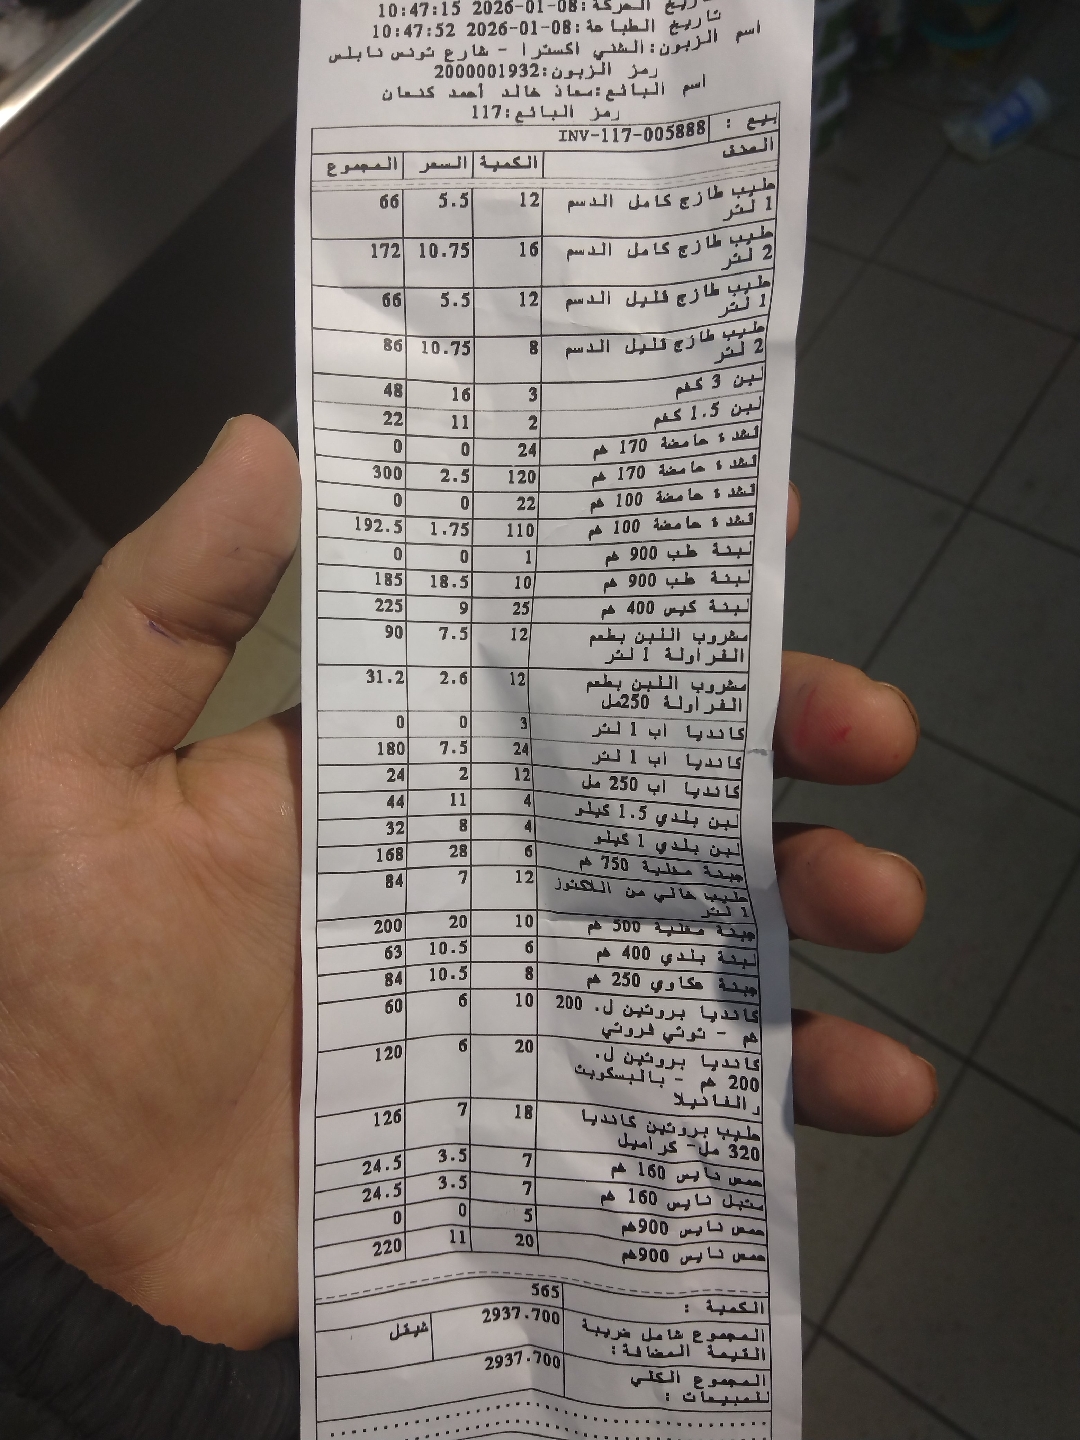 تاريخ الحركة: 2026-01-08 10:47:15
تاريخ الطباعة: 2026-01-08 10:47:52
اسم الزبون: الشني اكسترا - شارع تونس نابلس
رمز الزبون: 2000001932
اسم البائع: معاذ خالد أحمد كنعان
رمز البائع: 117
بيع : INV-117-005888
الصنف الكمية السعر المجموع
حليب طازج كامل الدسم 12 5.5 66
1 لتر
حليب طازج كامل الدسم 16 10.75 172
2 لتر
حليب طازج قليل الدسم 12 5.5 66
1 لتر
حليب طازج قليل الدسم 8 10.75 86
2 لتر
لبن 3 كغم 3 16 48
لبن 1.5 كغم 2 11 22
قشدة حامضة 170 غم 24 0 0
قشدة حامضة 170 غم 120 2.5 300
قشدة حامضة 100 غم 22 0 0
قشدة حامضة 100 غم 110 1.75 192.5
لبنة علب 900 غم 1 0 0
لبنة علب 900 غم 10 18.5 185
لبنة كيس 400 غم 25 9 225
مشروب اللبن بطعم 12 7.5 90
الفراولة 1 لتر
مشروب اللبن بطعم 12 2.6 31.2
الفراولة 250مل
كانديا اب 1 لتر 3 0 0
كانديا اب 1 لتر 24 7.5 180
كانديا اب 250 مل 12 2 24
لبن بلدي 1.5 كيلو 4 11 44
لبن بلدي 1 كيلو 4 8 32
جبنة مغلية 750 غم 6 28 168
حليب خالي من اللاكتوز 12 7 84
1 لتر
جبنة مغلية 500 غم 10 20 200
لبنة بلدي 400 غم 6 10.5 63
جبنة عكاوي 250 غم 8 10.5 84
كانديا بروتين ل. 200 10 6 60
غم - توتي فروتي
كانديا بروتين ل. 20 6 120
200 غم - بالبسكويت
والفانيلا
حليب بروتين كانديا 18 7 126
320 مل- كراميل
حمص نايس 160 غم 7 3.5 24.5
متبل نايس 160 غم 7 3.5 24.5
حمص نايس 900غم 5 0 0
حمص نايس 900غم 20 11 220
الكمية : 565
المجموع شامل ضريبة 2937.700 شيقل
القيمة المضافة:
المجموع الكلي 2937.700
للمبيعات :